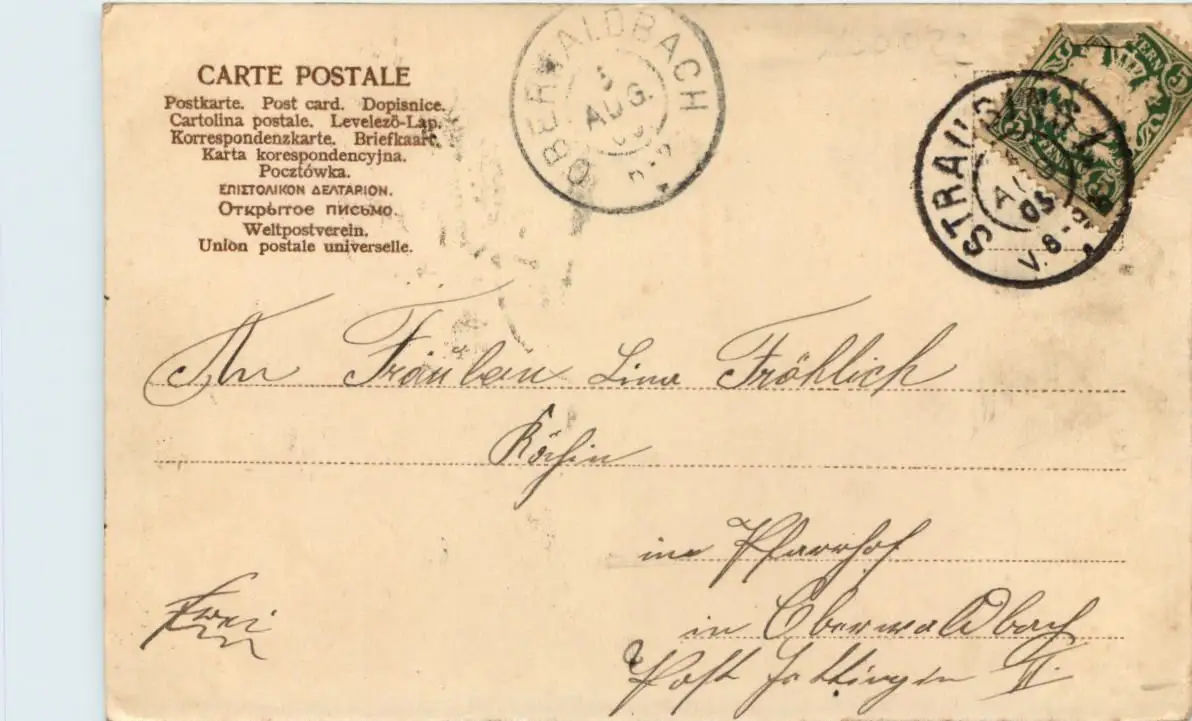 CARTE POSTALE
Postkarte. Post card. Dopisnice.
Cartolina postale. Levelező-Lap.
Korrespondenzkarte. Briefkaart.
Karta korespondencyjna.
Pocztówka.
ΕΠΙΣΤΟΛΙΚΟΝ ΔΕΛΤΑΡΙΟΝ.
Открытое письмо.
Weltpostverein.
Union postale universelle.
OBERWALDBACH
5
AUG
STRAUBING
AUG
05
V.8-9
5
An Fräulein Lina Fröhlich
Köchin
im Pfarrhof
in Oberwaldbach
Post